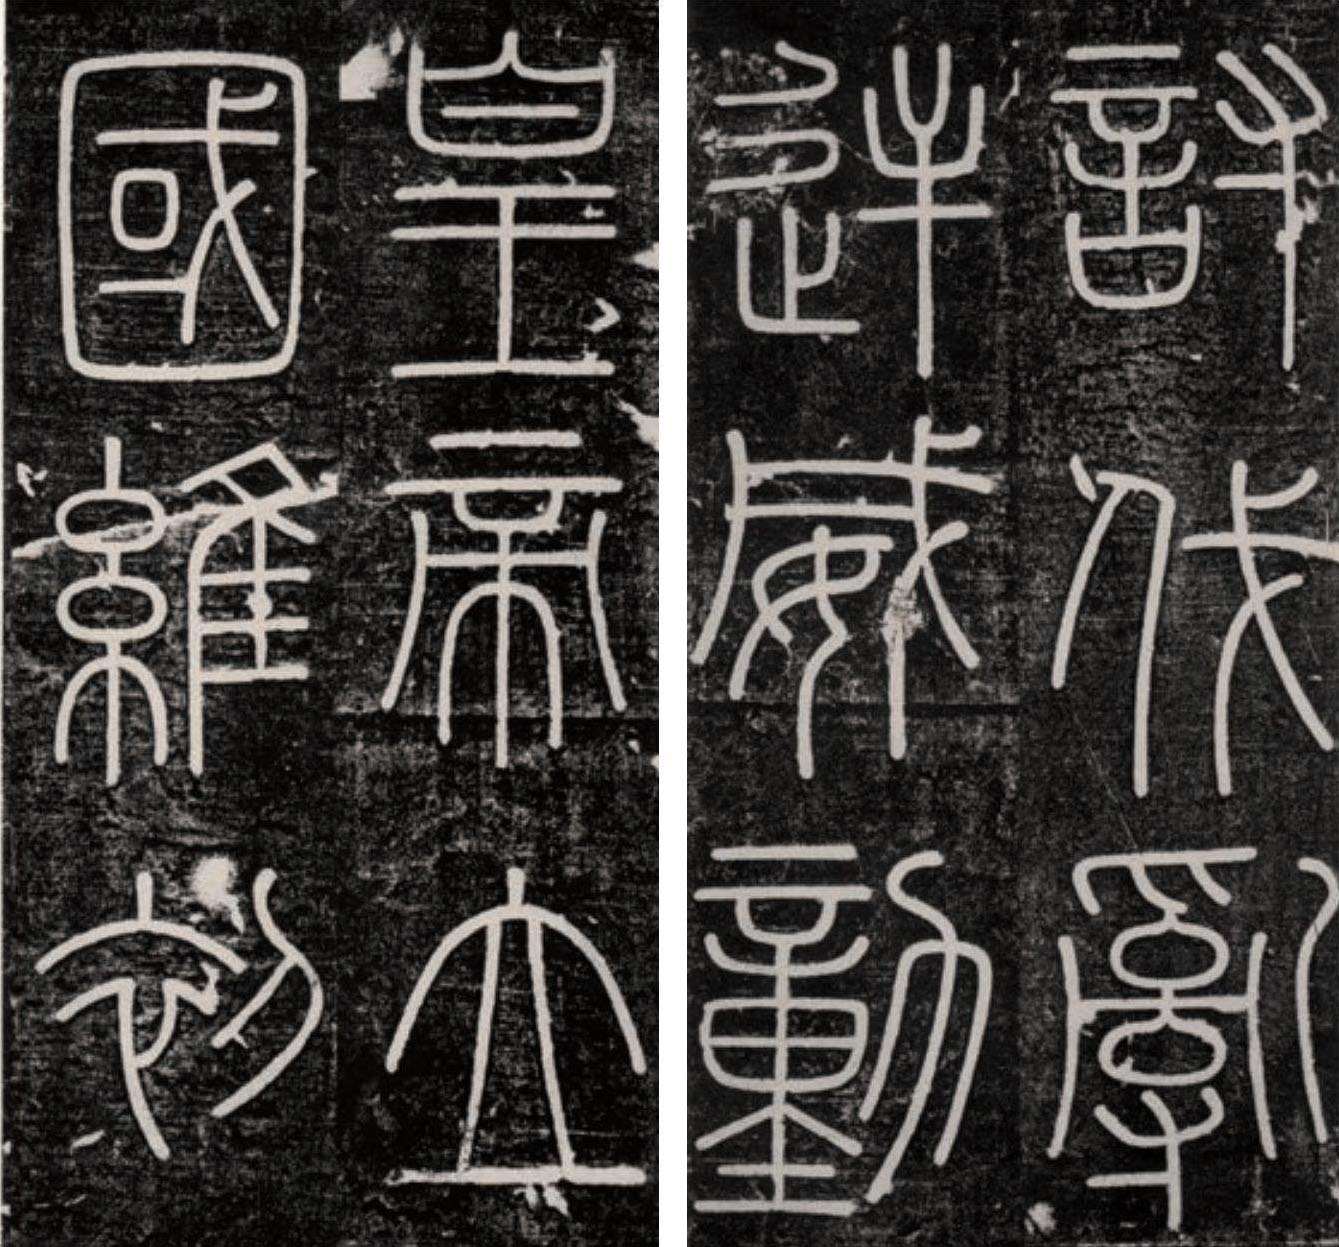 皇帝立
國維初
討伐亂
逆威動